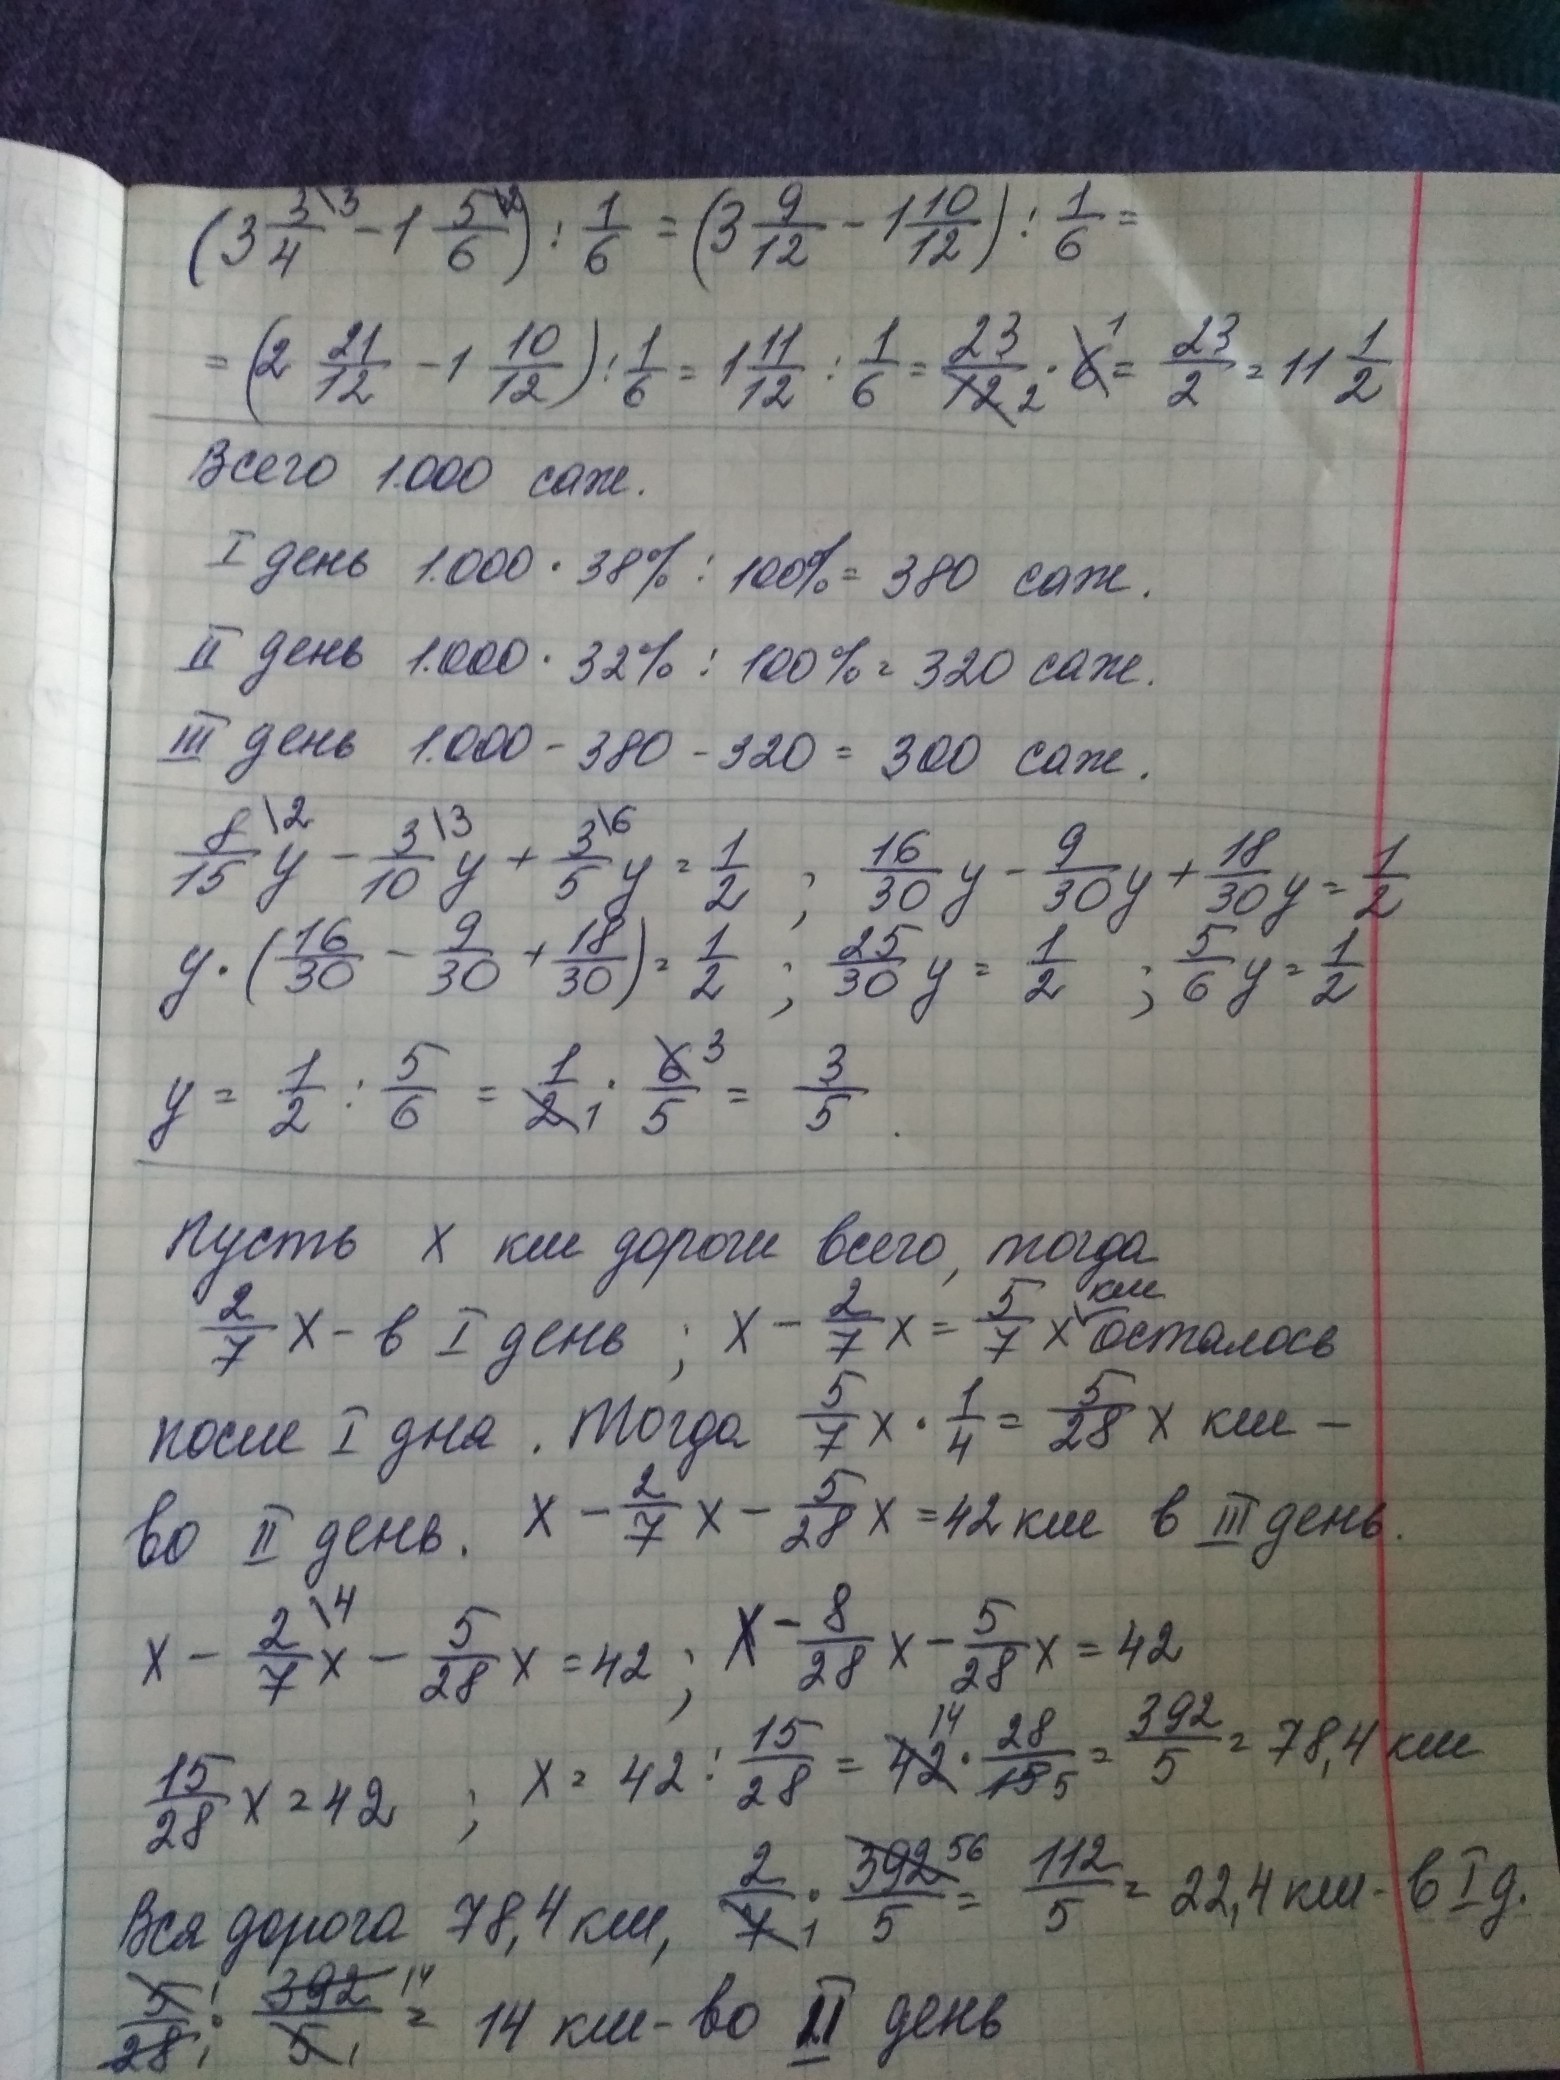 (3 3/4 \3 - 1 5/6 \2) : 1/6 = (3 9/12 - 1 10/12) : 1/6 =
= (2 21/12 - 1 10/12) : 1/6 = 1 11/12 : 1/6 = 23/12 2 · 6 1 = 23/2 = 11 1/2
Всего 1.000 саж.
I день 1.000 · 38% : 100% = 380 саж.
II день 1.000 · 32% : 100% = 320 саж.
III день 1.000 - 380 - 320 = 300 саж.
8/15 \2 y - 3/10 \3 y + 3/5 \6 y = 1/2 ; 16/30 y - 9/30 y + 18/30 y = 1/2
y · (16/30 - 9/30 + 18/30) = 1/2 ; 25/30 y = 1/2 ; 5/6 y = 1/2
y = 1/2 : 5/6 = 1/2 1 · 6/5 3 = 3/5 .
Пусть x км дороги всего, тогда
2/7 x - в I день ; x - 2/7 x = 5/7 x км осталось
после I дня. Тогда 5/7 x · 1/4 = 5/28 x км -
во II день. x - 2/7 x - 5/28 x = 42 км в III день.
x - 2/7 \4 x - 5/28 x = 42 ; x - 8/28 x - 5/28 x = 42
15/28 x = 42 ; x = 42 : 15/28 = 42 14 · 28/15 5 = 392/5 = 78,4 км
Вся дорога 78,4 км, 2/7 1 · 392/5 56 = 112/5 = 22,4 км - в I д.
5/28 1 1 · 392/5 14 1 = 14 км - во II день